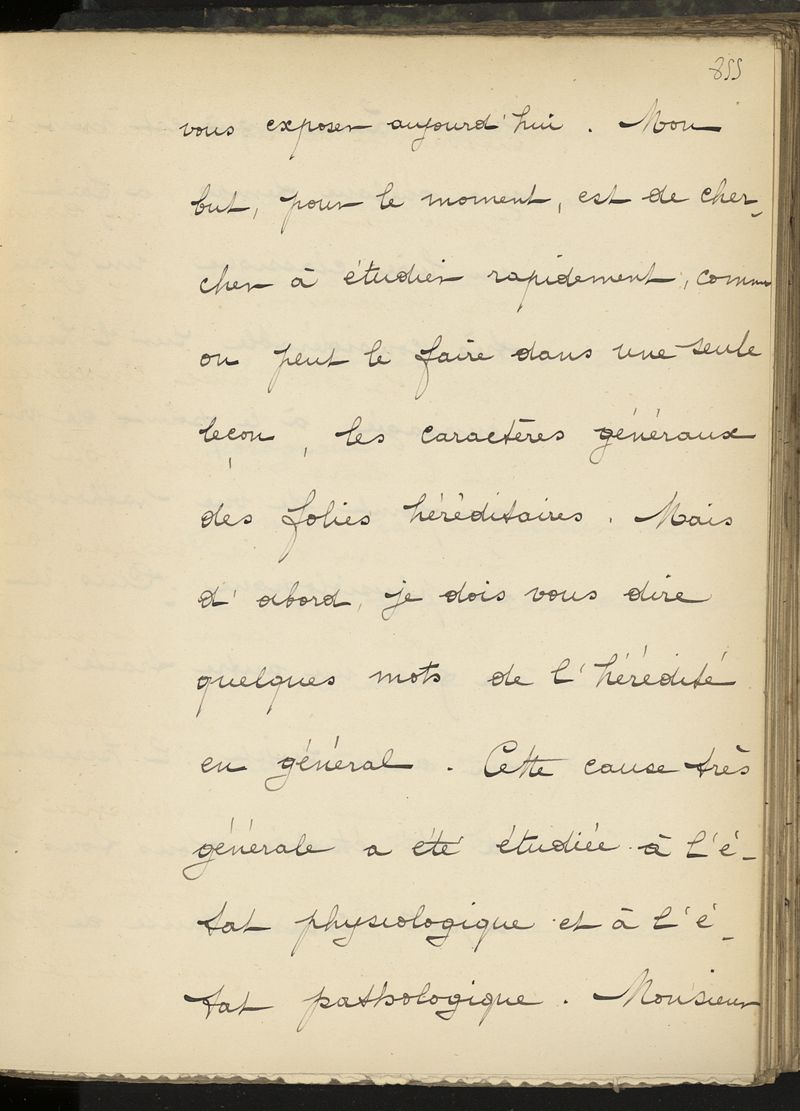 855
vous exposer aujourd'hui. Mon
but, pour le moment, est de cher-
cher à étudier rapidement, comme
on peut le faire dans une seule
leçon, les caractères généraux
des folies héréditaires. Mais
d'abord, je dois vous dire
quelques mots de l'hérédité
en général. Cette cause très
générale a été étudiée à l'é-
tat physiologique et à l'é-
tat pathologique. Monsieur